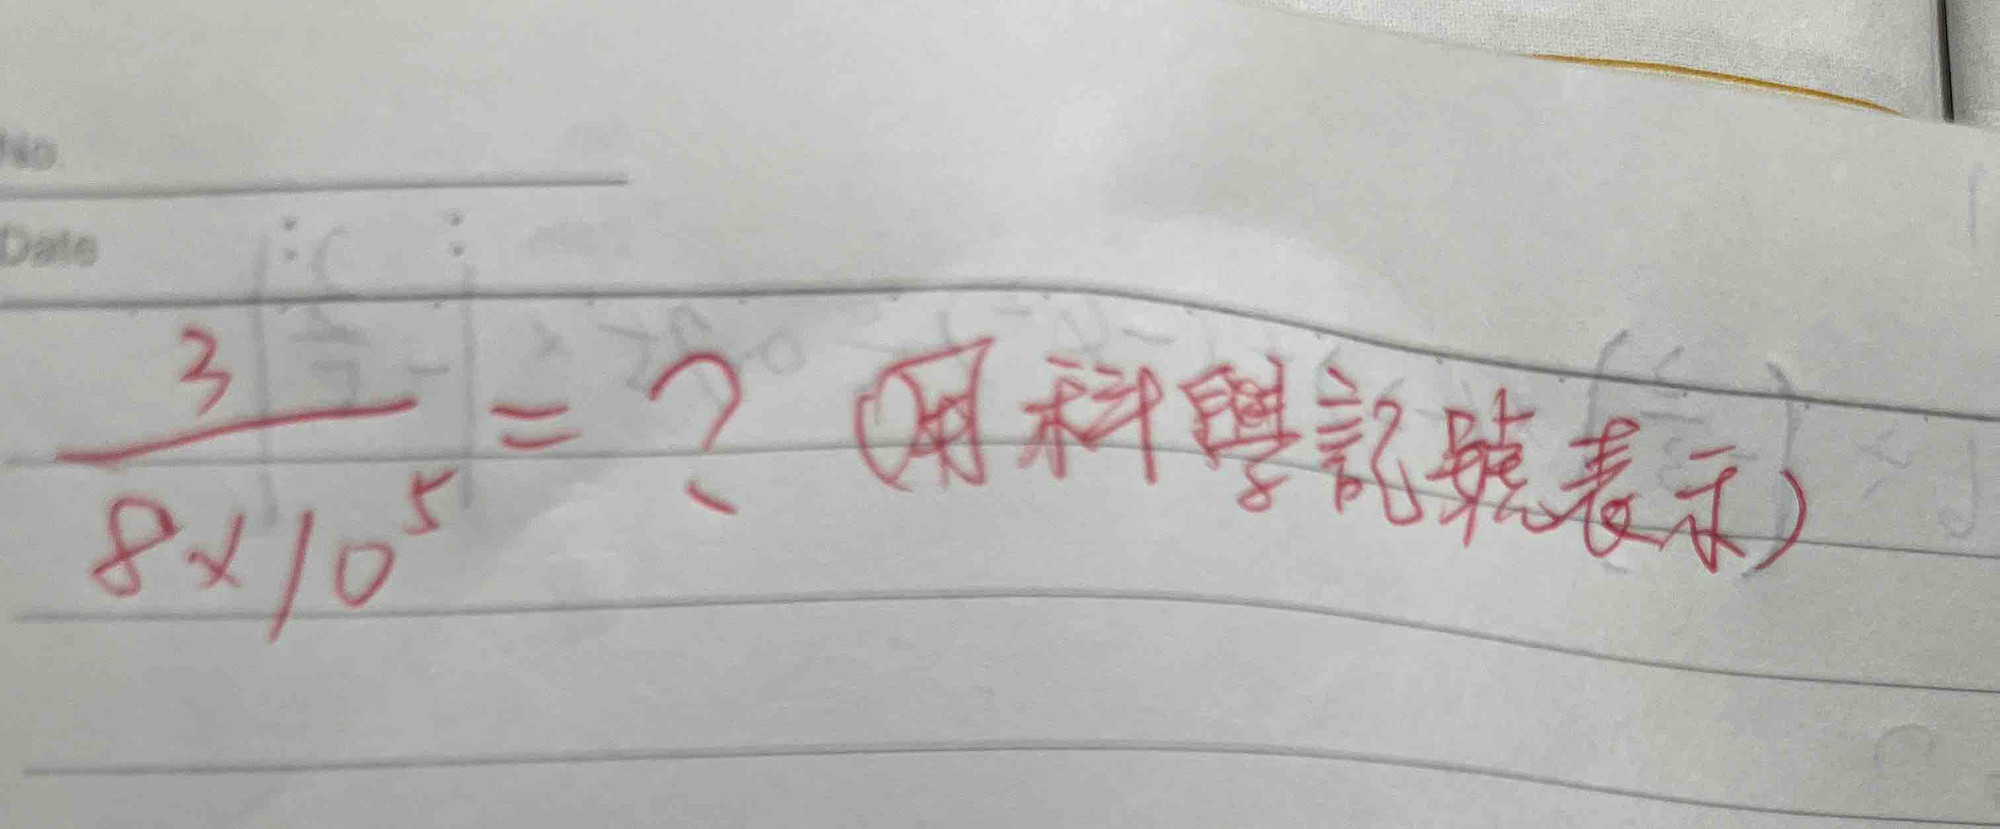 No.
Date
3/(8×10^5) = ? (用科學記號表示)